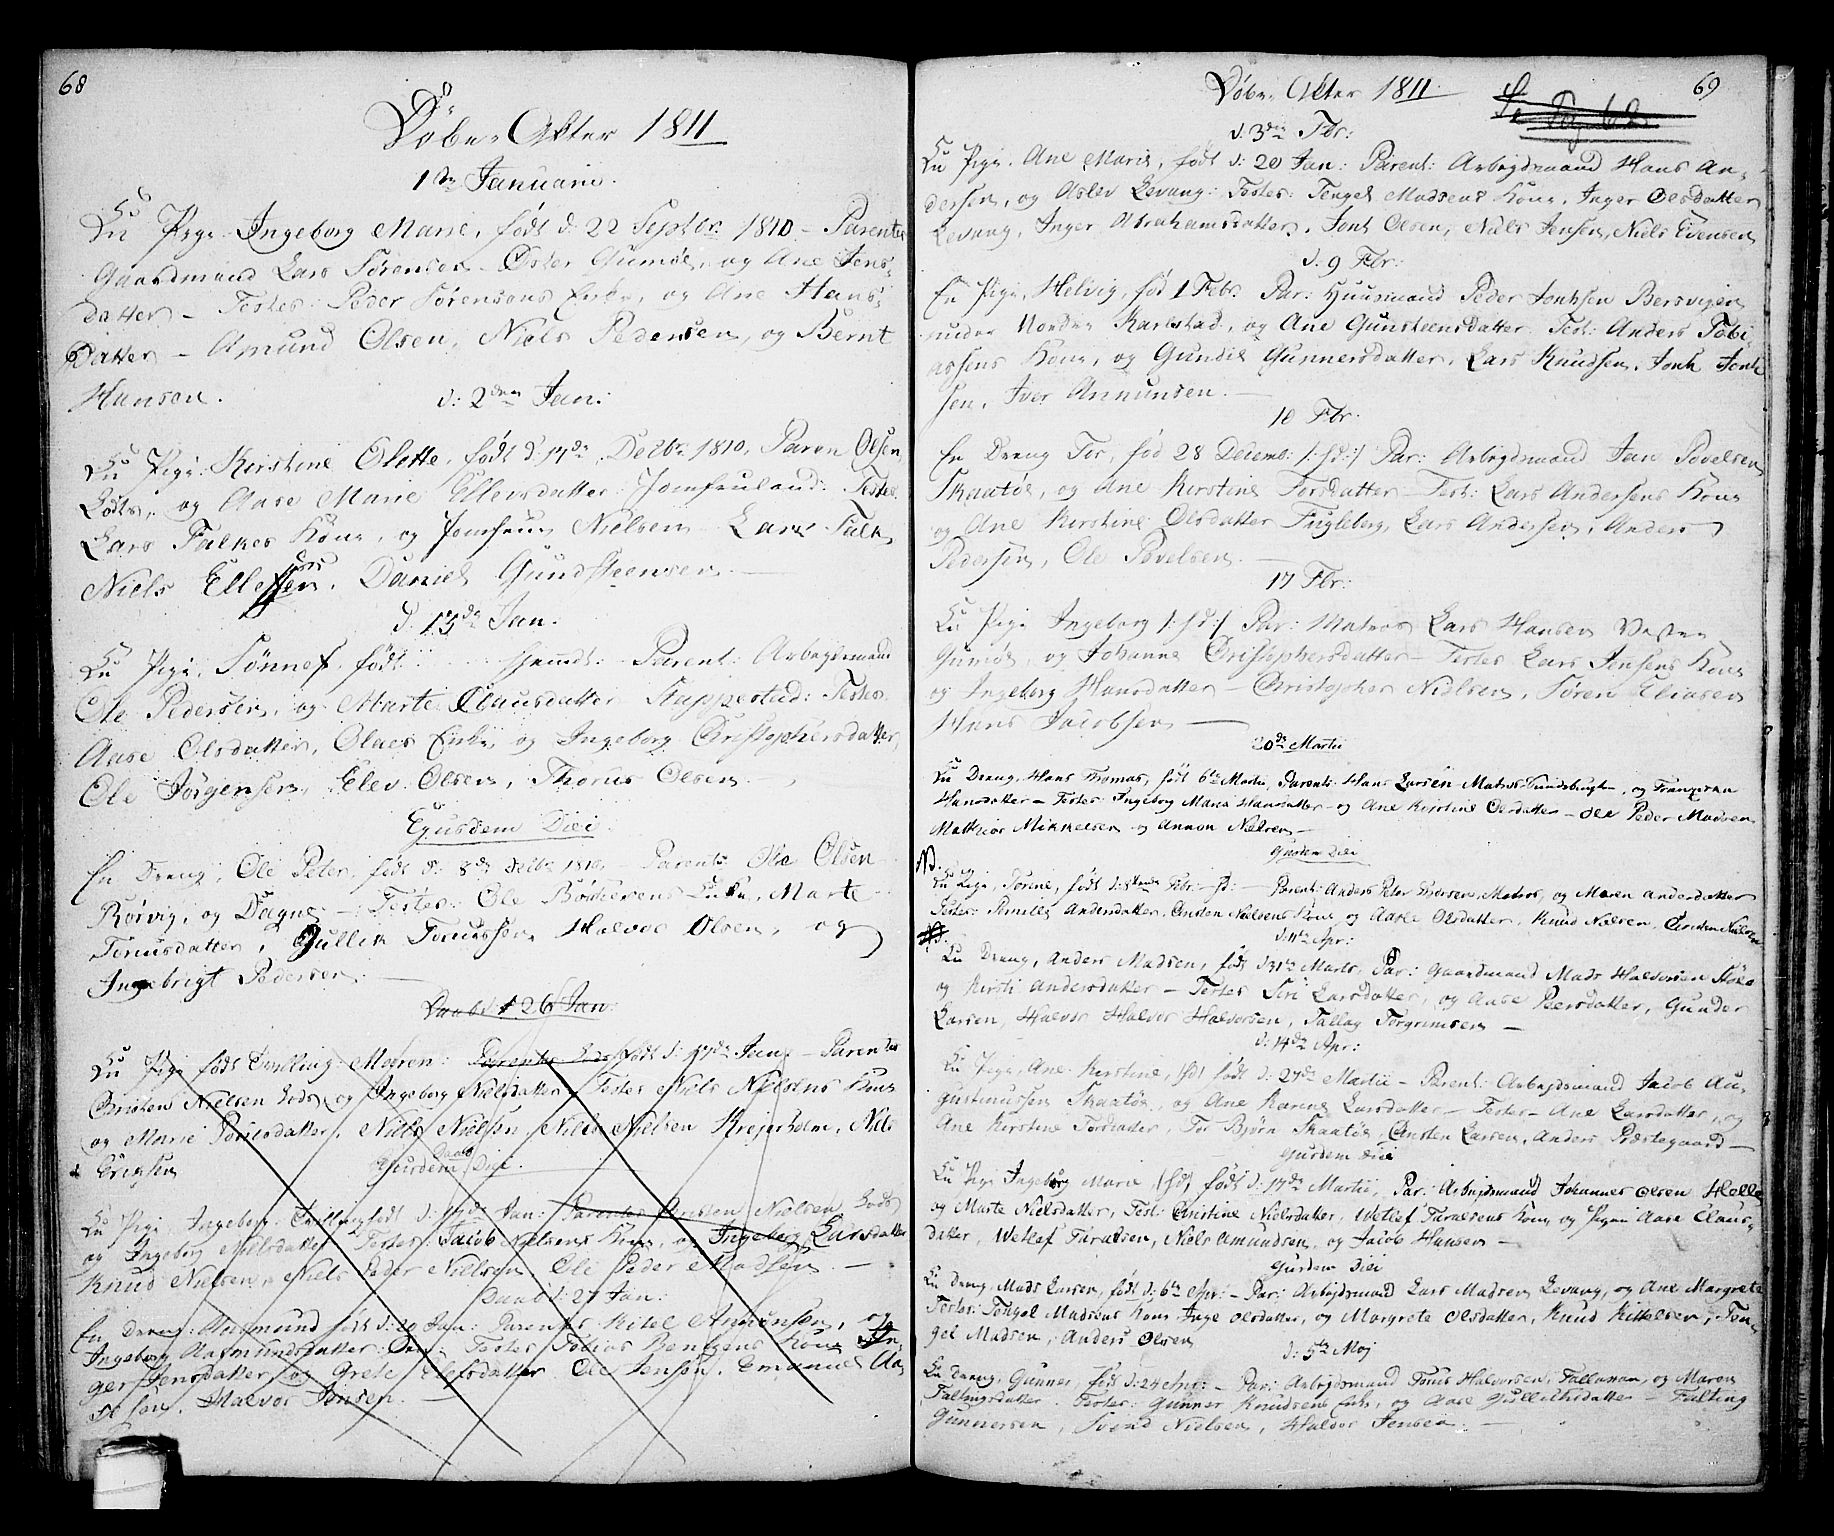 68
Døbe-Akter 1811
1ste Januarii.
En Pige Ingeborg Marie, født d: 22 Septbr. 1810 - Parenter
Gaardmand Lars Sørensen Øster Gumøe, og Ane Jens-
datter - Testes: Peder Sørensens Enke, og Ane Hans-
datter - Amund Olsen, Niels Pedersen, og Bernt
Hansen.
d: 2den Jan:
En Pige Kirstine Olette, født d: 17de Decbr. 1810, Paren Olsen
Lods, og Aase Marie Ellevsdatter Jomfruland: Testes
Lars Falkes Kone, og Jomfrue Nielsen - Lars Falk,
Niels Ellefsen, Daniel Gundsteensen
d. 13de Jan.
En Pige, Sønnef, født Parent: Arbeydsmand
Ole Pedersen, og Marte Clausdatter Stappestad: Testes
Aase Olsdatter, Olaes Enke, og Ingeborg Christophersdatter,
Ole Jørgensen, Elev Olsen, Thorus Olsen
Ejusdem Diei
En Dreng, Ole Peter, født d: 8de Decbr 1810. Parent: Ole Olsen
Rørvig, og Dagne - Testes: Ole Enke, Marte
Tonusdatter, Gullik Tonusson, Halvor Olsen, og
Ingebrigt Pedersen.
Daabd: 26 Jan:
En Pige født Tvilling Maren: født d: 17de Jan - Parentes
Christen Nielsen Lods, og Ingeborg Nielsdatter, Testes Niels Nielsens Kone
og Marie datter, Niels Nielsen, Niels Nielsen Krejerholm, Nils
Eriksen
Ejusdem Diei.
En Pige Ingeborg Tvilling født d. 17de Jan: Parentes Christen Nielsen Lods
og Ingeborg Nielsdatter Testes: Jacob Nielsens Kone, og Ingeborg Larsdatter
Knud Nielsen, Niels Peder Nielsen, Ole Peder Madsen. -
Daabd: 27 Jan:
En Dreng: Aasmund født d: 20 Jan: Parentes Kitel Anunsen, og
Ingeborg Aasmundsdatter: Testes Tobias Bentzens Kone In-
ger Jensdatter, og Grete Elefsdatter, Ole Jensen, Emanuel
Halvor Jensen
69
Døbe-Akter 1811
d: 3die Fbr:
En Pige, Ane Marie, født d: 20 Jan: Parent: Arbejdsmand Hans An-
dersen, og Aslev Levang: Testes: Tengel Madsens Kone, Inger Olsdatter
Levang, Inger Abrahamsdatter, Jonh Olsen, Niels Jensen, Niels Evensen
d: 9 Fbr:
En Pige, Helvig, fød 1 Febr. Par: Huusmand Peder Jonhsen Bersvigen
under Nordre Karlstad, og Ane Gunsteensdatter Test: Anders Tobi-
assens Kone, og Gundil Gunnersdatter, Lars Knudsen, Jonh Jonh
sen, Iver Annunsen. -
10 Fbr.
En Dreng Tor, fød 28 Decemb: /: hd :/ Par: Arbejdsmand Jan Povelsen
Skaatøe, og Ane Kirstine Torsdatter - Test: Lars Andersens Kone
og Ane Kirstine Olsdatter Fugleberg, Lars Andersen, Anders
Pedersen, Ole Povelsen. -
17 Fbr:
En Pige Ingeborg /: hd :/ Par: Matros Lars Hansen Vester
Gumøe, og Johanne Christophersdatter - Testes Lars Jensens Kone
og Ingeborg Hansdatter - Christopher Nielsen, Søren Eliasen
Hans Jacobsen -
20de Martii
En Dreng, Hans Thomas, født 6te Martii, Parents: Hans Larsen Matros og
Hansdatter - Testes: Ingeborg Maria Hansdatter og Ane Kirstine Olsdatter - Ole Peder Madsen
Mathias Mikkelsen og Annon Nielsen -
Ejusdem Diei
NB.
En Pige, Torine, født Febr: - hd: - Parent: Anders Peter Matros, og Maren Andersdatter
Testes: Pernille Andersdatter, Christen Nielsens Kone og Aase Olsdatter, Knud Nielsen, Christen Nielsen
d: 11te Apr:
En Dreng, Anders Madsen, født d: 31te Marts, Par: Gaardmand Mads Halvorsen
og Kirsti Andersdatter - Testes Siri Larsdatter, og Aase Peersdatter, Gunder
Larsen, Halvor Halvor Halvorsen, Tallag Torgrimsen -
d: 14de Apr:
En Pige, Ane Kirstine, født d: 27de Martii - Parent: Arbejdsmand Jacob Au-
gustinussen Skaatøe, og Ane Karene Larsdatter - Testes - Ane Larsdatter, og
Ane Kirstine Torsdatter, Tor Bjørn Skaatøe, Christen Larsen, Anders Præstegaard -
Ejusdem Diei
En Pige Ingeborg Marie /hd/ født d: 17de Martii, Par: Arbejdsmand Johannes Olsen Helle
og Marte Nielsdatter, Test: Christine Nielsdatter, Wetlef Taraldsens Kone, og Pigen Aase Claus-
datter, Wetlef Taraldsen, Niels Amundsen, og Jacob Hansen -
Ejusdem Diei
En Dreng, Mads Larsen, født d: 6te Apr: - Par: Arbejdsmand Lars Madsen Levang, og Ane Margrete
Testes: Tengel Madsens Kone Inge Olsdatter, og Margrete Olsdatter, Knud Kittelsen, Ten-
gel Madsen, Anders Olsen
d: 5te Maj
En Dreng, Gunner, født d: 24 Apr: - Par: Arbejdsmand Tonis Halvorsen, og Maren
Faltingsdatter. Testes: Gunner Knudsens Enke, og Aase Gulliksdatter - Falting
Gunnersen, Svend Nielsen, Haldor Jensen. -